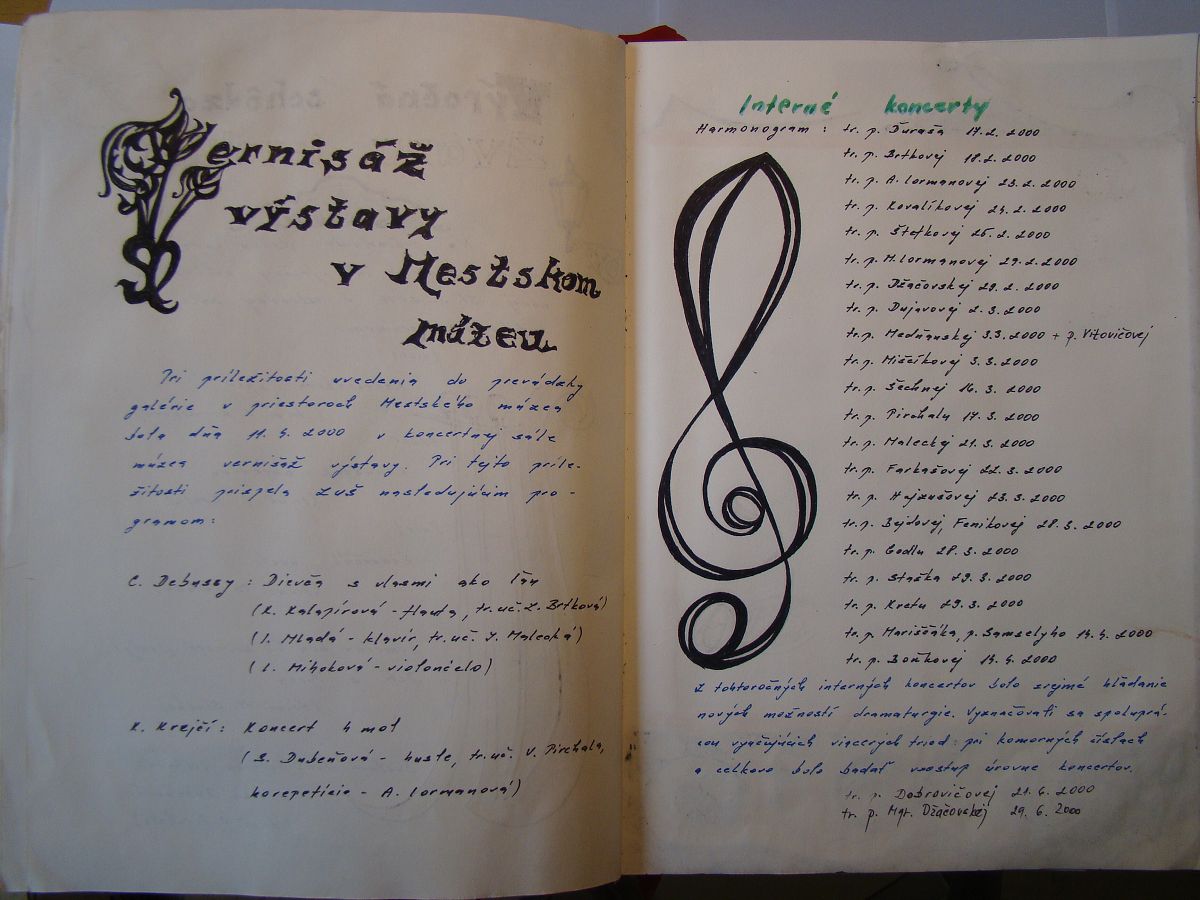 Vernisáž
výstavy
v Mestskom
múzeu
Pri príležitosti uvedenia do prevádzky
galérie v priestoroch Mestského múzea
bola dňa 11. 4. 2000 v koncertnej sále
múzea vernisáž výstavy. Pri tejto príle-
žitosti prispela ZUŠ nasledujúcim pro-
gramom:
C. Debussy: Dievča s vlasmi ako ľan
(K. Kalapírová - flauta, tr. uč. Z. Brtková)
(I. Mladá - klavír, tr. uč. J. Malecká)
(L. Mihoková - violončelo)
K. Krejčí: Koncert h mol
(S. Dubeňová - husle, tr. uč. V. Pirchala,
korepetície - A. Lormanová)
Interné koncerty
Harmonogram: tr. p. Ďuraša 17. 2. 2000
tr. p. Brtkovej 18. 2. 2000
tr. p. A. Lormanovej 23. 2. 2000
tr. p. Kovalíkovej 24. 2. 2000
tr. p. Štefkovej 25. 2. 2000
tr. p. M. Lormanovej 29. 2. 2000
tr. p. Džačovskej 29. 2. 2000
tr. p. Dujavovej 2. 3. 2000
tr. p. Medňanskej 3. 3. 2000 + p. Vitovičovej
tr. p. Miščíkovej 3. 3. 2000
tr. p. Šechnej 16. 3. 2000
tr. p. Pirchalu 17. 3. 2000
tr. p. Maleckej 21. 3. 2000
tr. p. Farkašovej 22. 3. 2000
tr. p. Hajzušovej 23. 3. 2000
tr. p. Bejdovej, Fenikovej 28. 3. 2000
tr. p. Godlu 28. 3. 2000
tr. p. Staška 29. 3. 2000
tr. p. Kretu 29. 3. 2000
tr. p. Mariščáka, p. Samselyho 14. 4. 2000
tr. p. Bočkovej 14. 4. 2000
Z tohtoročných interných koncertov bolo zrejmé hľadanie
nových možností dramaturgie. Vyznačovali sa spoluprá-
cou vyučujúcich viacerých tried pri komorných číslach
a celkovo bolo badať vzostup úrovne koncertov.
tr. p. Dobrovičovej 21. 6. 2000
tr. p. Mgr. Džačovskej 29. 6. 2000